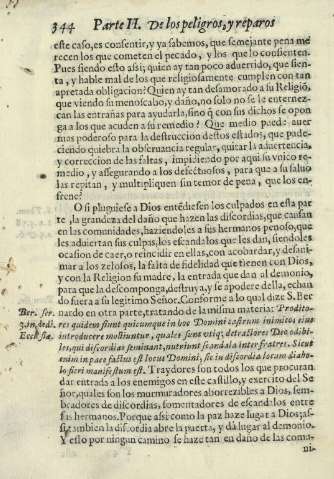 344 Parte II. De los peligros, y reparos
este caso, es consentir, y ya sabemos, que semejante pena me
recen los que cometen el pecado, y los que lo consienten.
Pues siendo esto assi; quien ay tan poco aduertido, que sien-
ta, y hable mal de los que religiosamente cumplen con tan
apretada obligacion? Quien ay tan desamorado a su Religiõ,
que viendo su menoscabo, y daño, no solo no se le enternez-
can las entrañas para ayudarla, sino q̃ con sus dichos se opon
ga a los que acuden a su remedio? Que medio puede auer
mas poderoso para la destruccion destos estados, que pade-
ciendo quiebra la obseruancia regular, quitar la aduertencia,
y correccion de las faltas, impidiendo por aqui su vnico re-
medio, y assegurando a los defectuosos, para que a su saluo
las repitan, y multipliquen sin temor de pena, que los en-
frene?
O si pluguiesse a Dios entēdiessen los culpados en esta par
te, la grandeza del daño que hazen las discordias, que causan
en las comunidades, haziendoles a sus hermanos penoso, que
les aduiertan sus culpas, los escandalos que les dan, siendoles
ocasion de caer, o reincidir en ellas, con acobardar, y desani-
mar a los zelosos, la falta de fidelidad que tienen con Dios,
y con la Religion su madre, la entrada que dan al demonio,
para que la descomponga, destruya, y se apodere della, echan
do fuera a su legitimo Señor. Conforme a lo qual dize S. Ber
nardo en otra parte, tratando de la misma materia: Prodito-
Ber. ser.
3. in dedi.
Ecclesiæ.
res quidem sunt quicumque in hoc Domini castrum inimicos eius
introducere moliuntur, quales sunt vtiq; detractores Deo odibi-
les, qui discordias seminant, nutriunt scandala inter fratres. Sicut
enim in pace factus est locus Domini, sic in discordia locum diabo-
lo fieri manifestum est. Traydores son todos los que procuran
dar entrada a los enemigos en este castillo, y exercito del Se
ñor, quales son los murmuradores aborrezibles a Dios, sem-
bradores de discordias, fomentadores de escandalos entre
sus hermanos. Porque assi como la paz haze lugar a Dios; as-
si tambien la discordia abre la puerta, y dà lugar al demonio.
Y esto por ningun camino se haze tan en daño de las comu-
ni-